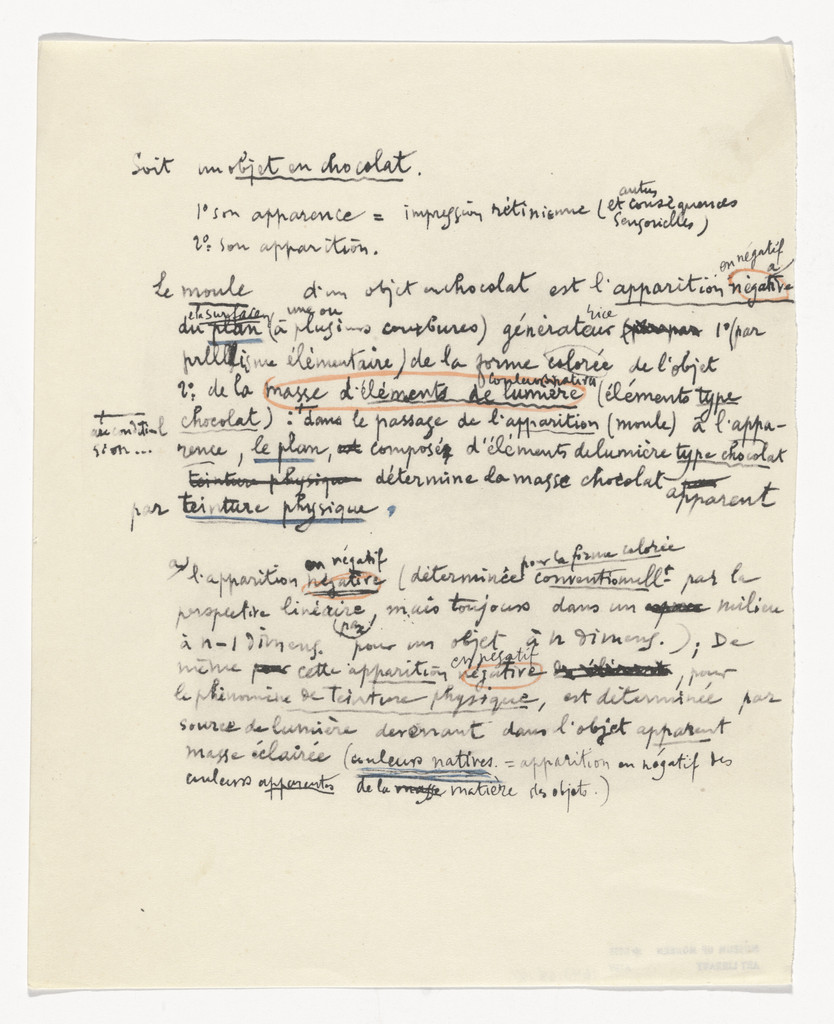 Soit un objet en chocolat.
1º son apparence = impression rétinienne (et autres conséquences
sensorielles)
2º: son apparition.
en négatif
Le moule d'un objet en chocolat est l'apparition négative a
et la surface une ou rice
du plan (à plusieurs courbures) générateur 1º (par
élémentaire) de la forme colorée de l'objet
2º: de la masse d'éléments de lumière (éléments type
chocolat) : + dans le passage de l'apparition (moule) à l'appa-
+
sion...
rence, le plan, composé d'éléments de lumière type chocolat
teinture physique détermine la masse chocolat apparent
par teinture physique.
en négatif pour la forme colorée
a) l'apparition négative (déterminée conventionellt par la
perspective linéaire, mais toujours dans un milieu
à n-1 dimens. (par) pour un objet à n dimens.); De
en négatif
même cette apparition négative, pour
le phénomène de teinture physique, est déterminée par
source de lumière devenant dans l'objet apparent
masse éclairée (couleurs natives. = apparition en négatif des
couleurs apparentes de la masse matière des objets.)